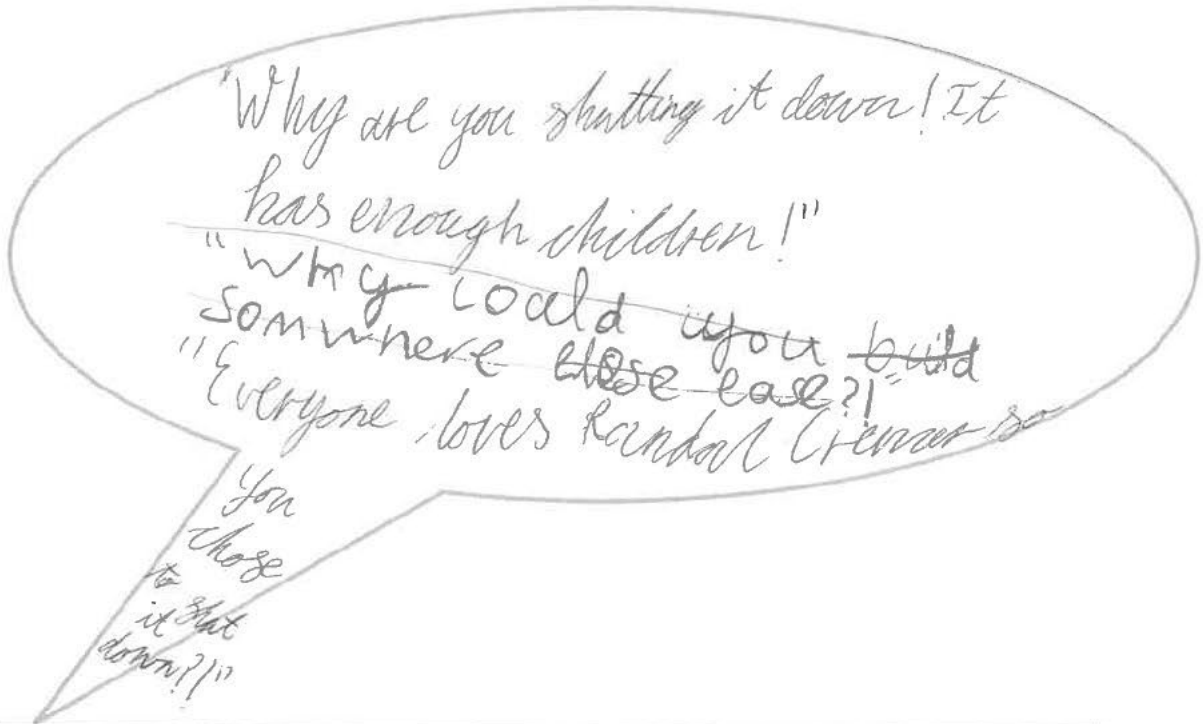 "Why are you shutting it down! It
has enough children!"
"Why could you build
somwhere else ease?!"
"Everyone loves Randal Cremer so
you
chose
to
it shut
down?!"